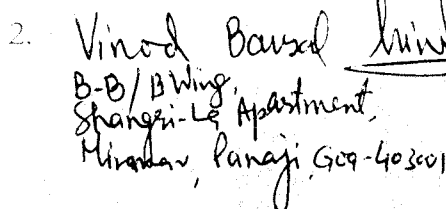 2. Vinod Bansal
B-B/B Wing,
Shangri-La Apartment,
Miramar, Panaji, Goa-403001